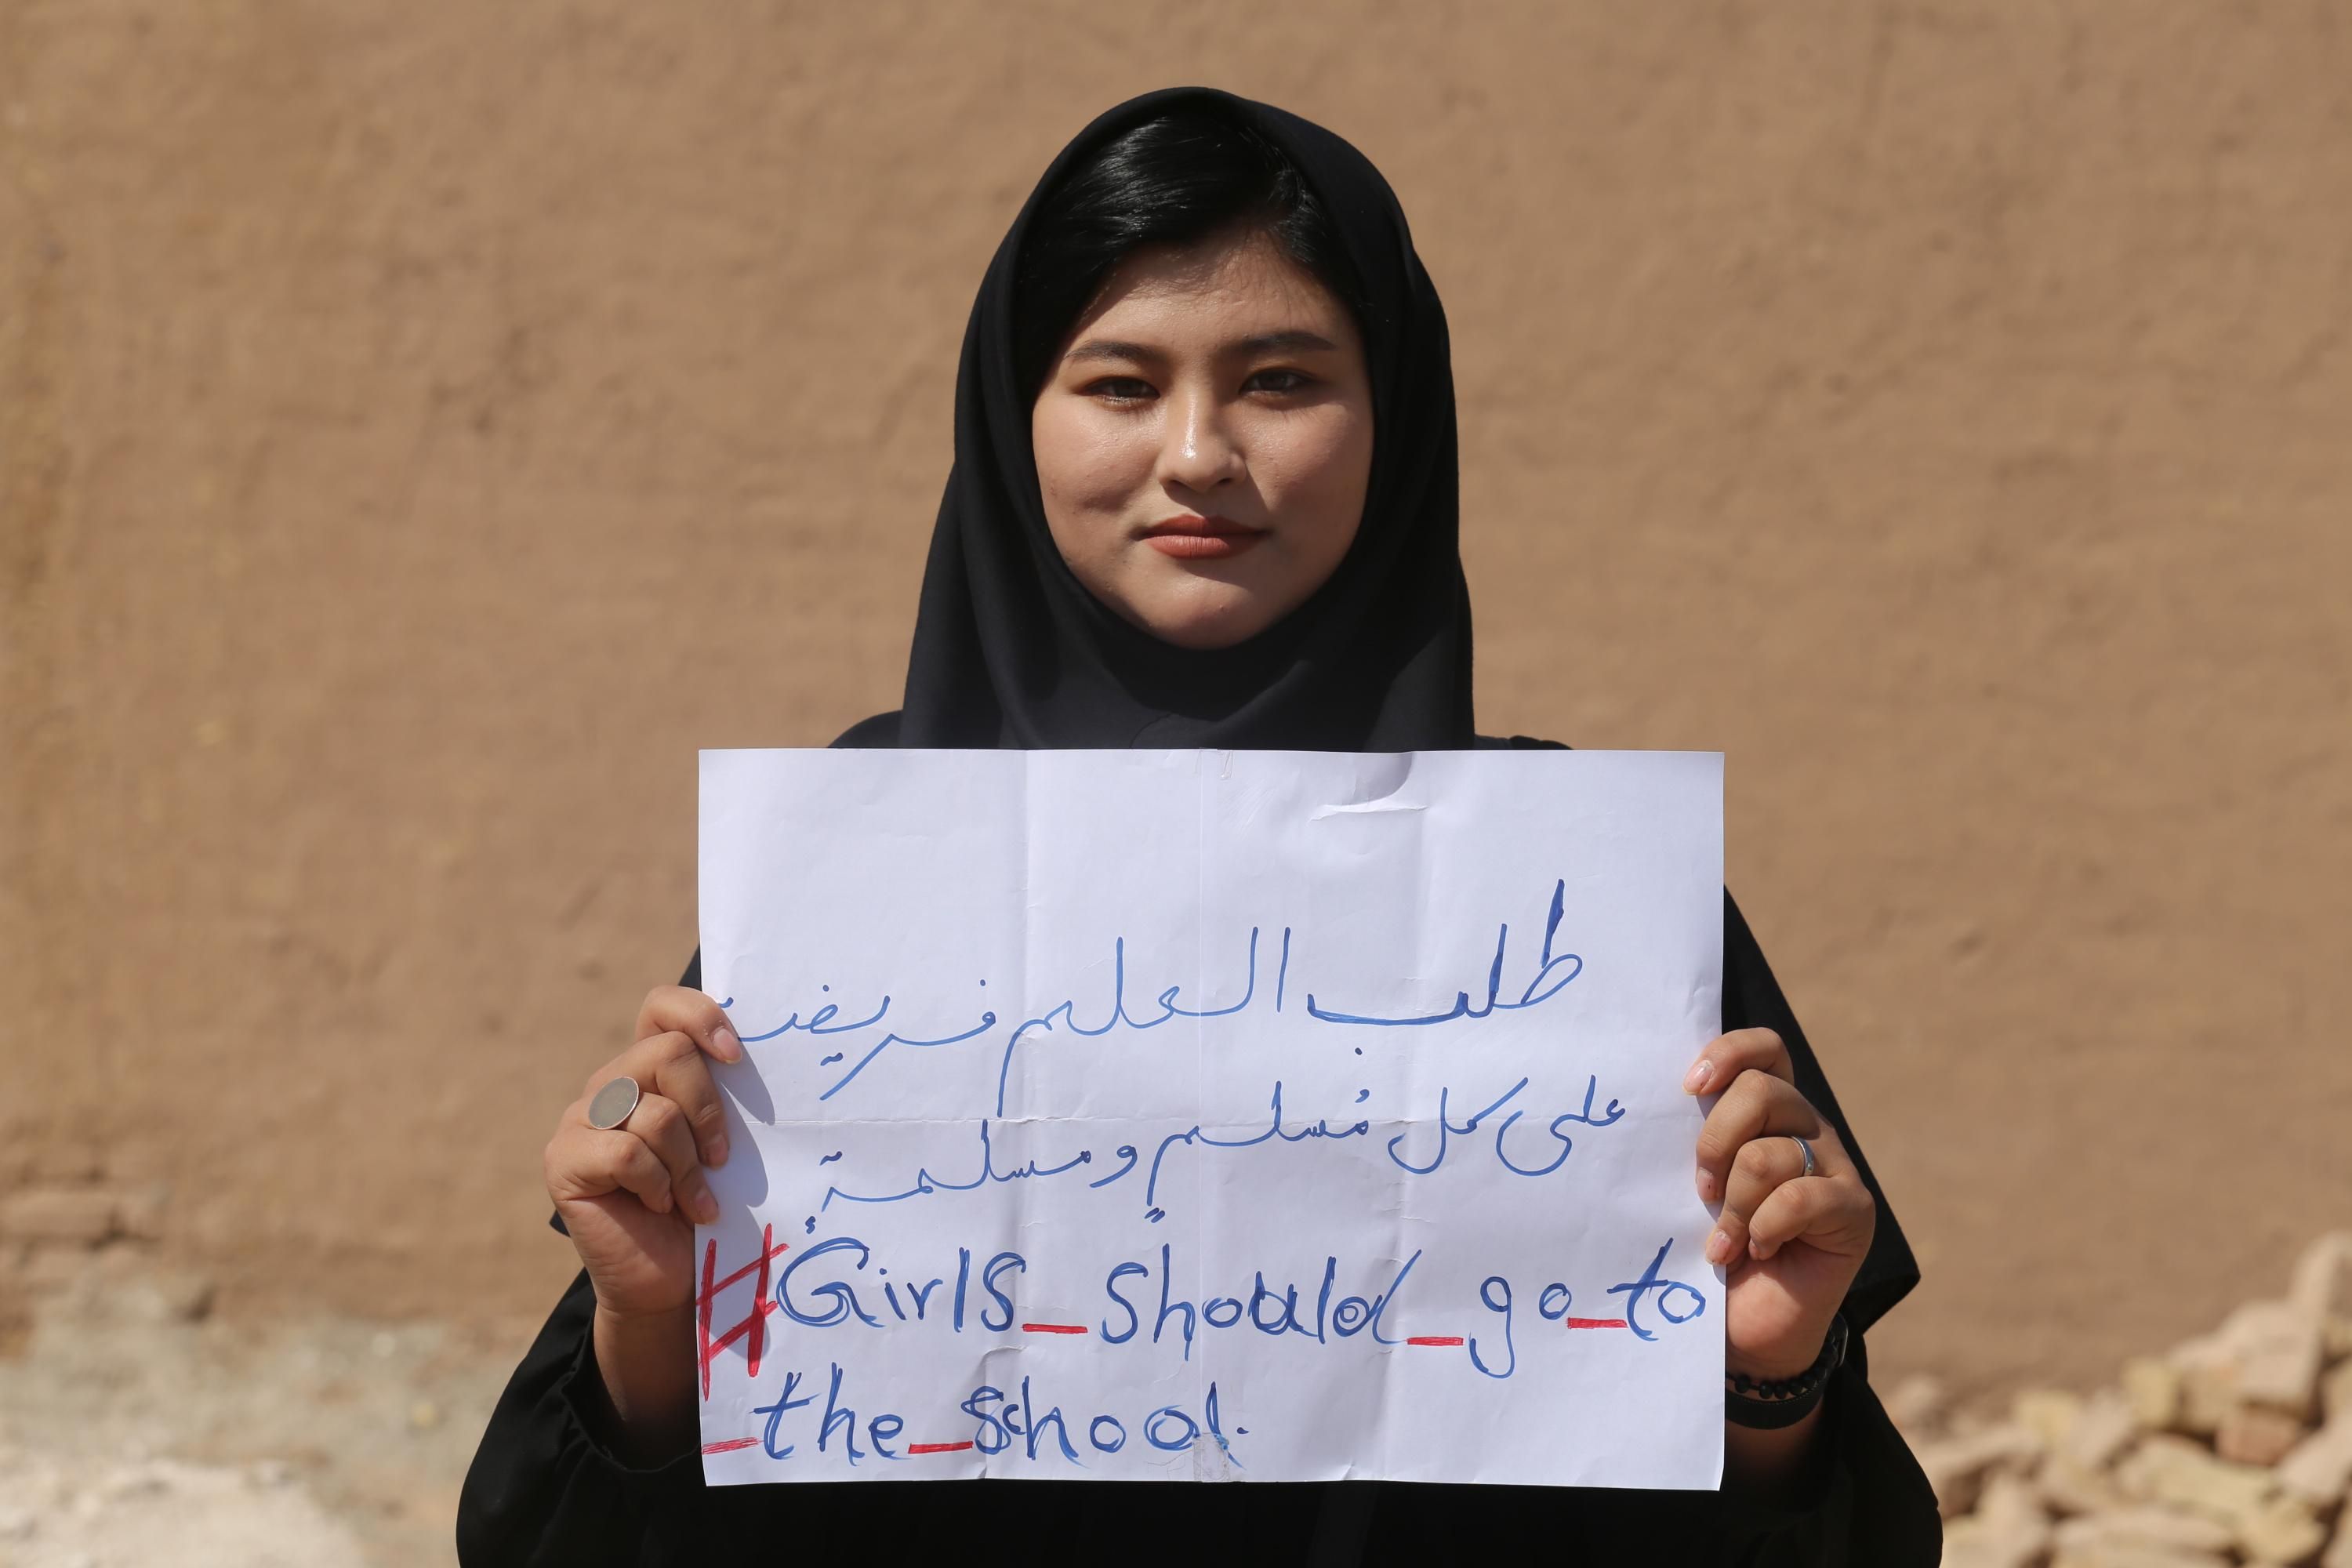 طلب العلم فريضة
على كل مُسلمٍ ومسلمةٍ
#Girls_should_go_to
_the_school.